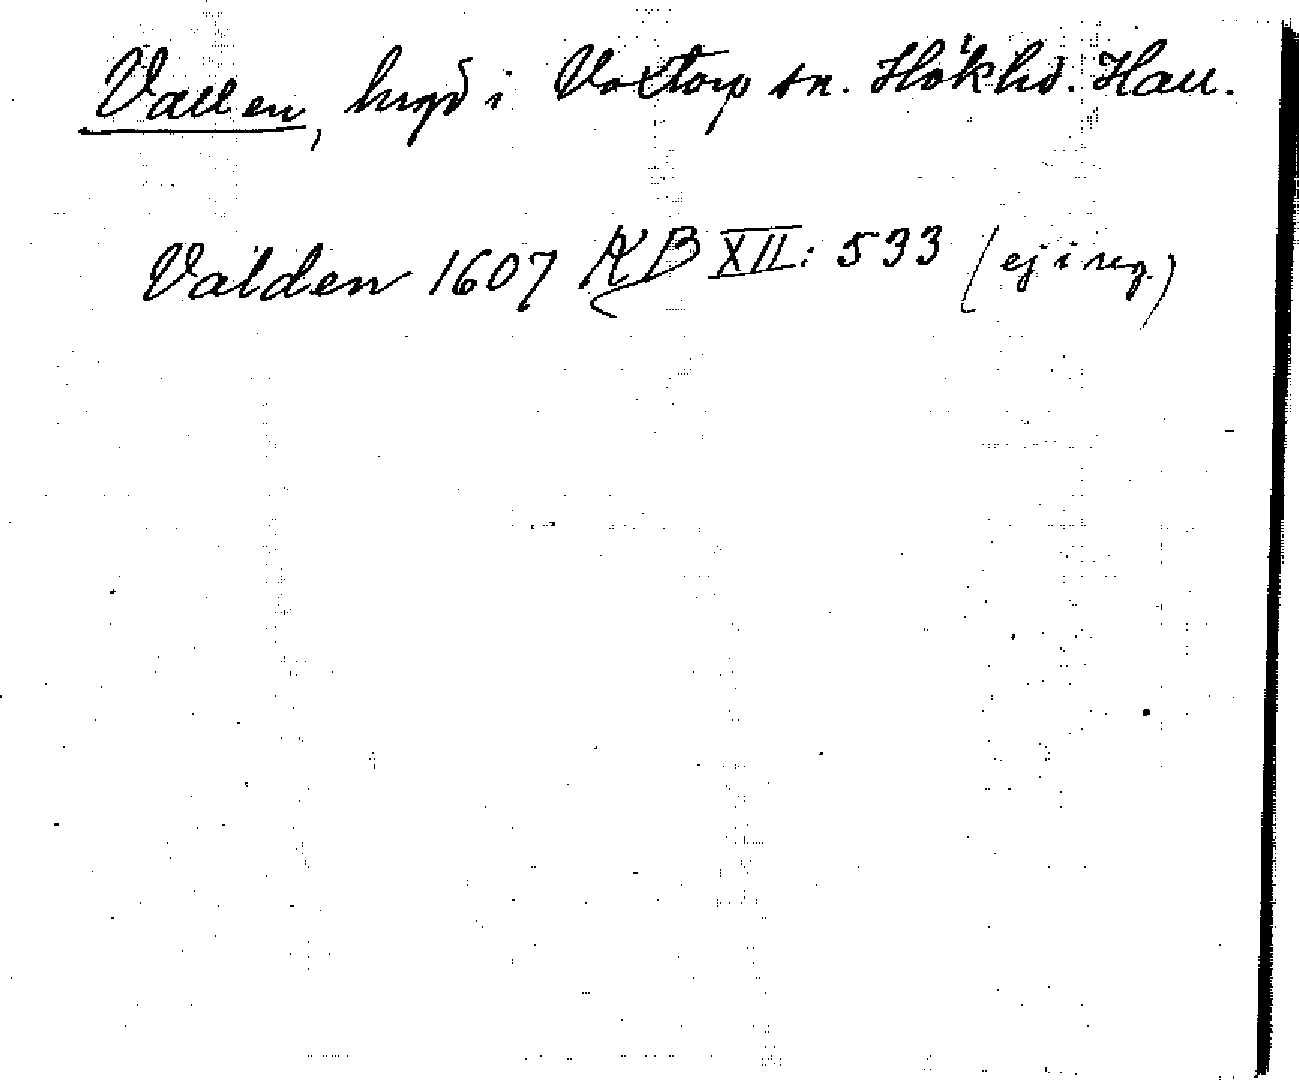 Vallen, hrgd i Voxtorp sn. Hökhd. Hall.
Valden 1607 KB XII: 533 (ej i reg.)